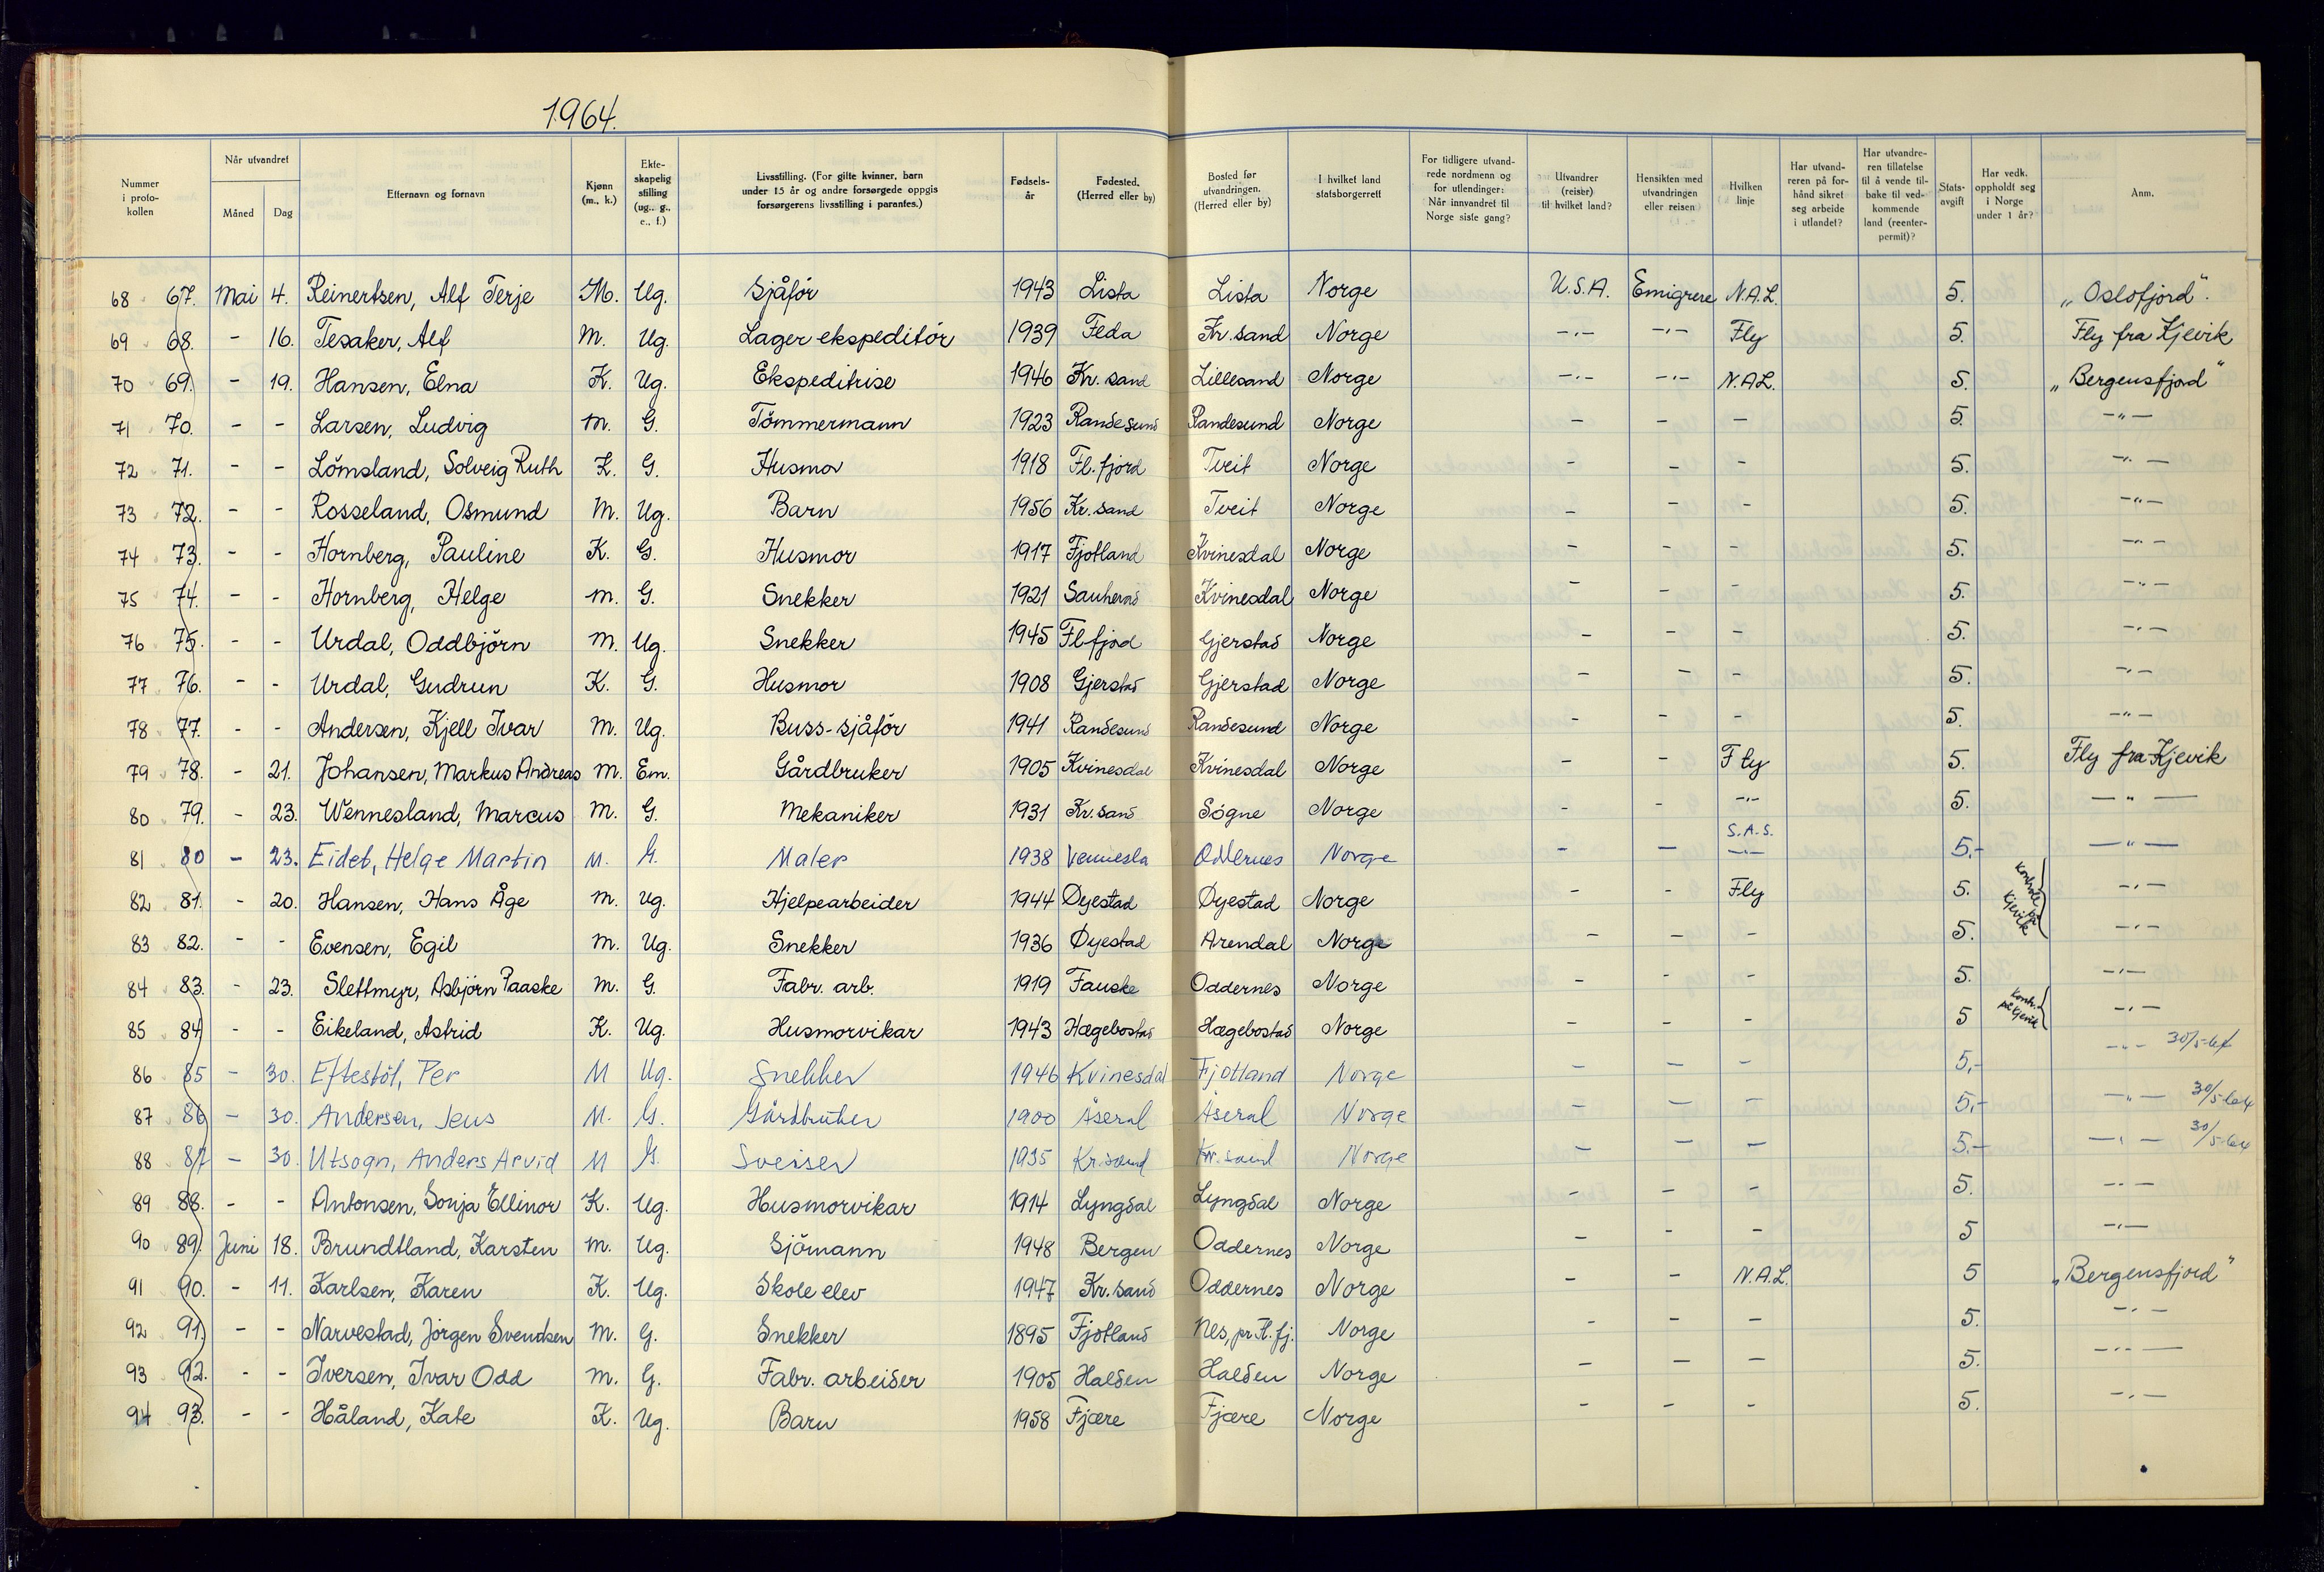 1964.
Nummer i protokollen | Når utvandret Måned | Dag | Etternavn og fornavn | Kjønn (m., k.) | Ekteskapelig stilling (ug., g., e., f.) | Livsstilling. (For gifte kvinner, barn under 15 år og andre forsørgede oppgis forsørgerens livsstilling i parantes.) | Fødselsår | Fødested. (Herred eller by) | Bosted før utvandringen. (Herred eller by) | I hvilket land statsborgerrett | For tidligere utvandrede nordmenn og for utlendinger: Når innvandret til Norge siste gang? | Utvandrer (reiser) til hvilket land? | Hensikten med utvandringen eller reisen | Hvilken linje | Har utvandreren på forhånd sikret seg arbeide i utlandet? | Har utvandreren tillatelse til å vende tilbake til vedkommende land (reenterpermit)? | Statsavgift | Har vedk. oppholdt seg i Norge under 1 år? | Anm.
68 67. Mai 4. Reinertsen, Alf Terje M. Ug. Sjåför 1943 Lista Lista Norge U.S.A. Emigrere N.A.L. 5. „Oslofjord".
69 68. - 16. Tesaker, Alf M. Ug. Lager ekspeditör 1939 Feda Kr.sand Norge -"- -"- Fly 5. Fly fra Kjevik
70 69. - 19. Hansen, Elna K. Ug. Ekspeditrise 1946 Kr. sand Lillesand Norge -"- -"- N.A.L. 5. „Bergensfjord"
71 70. - - Larsen, Ludvig M. G. Tömmermann 1923 Randesund Randesund Norge - - - 5. -"-
72 71. - - Lömsland, Solveig Ruth K. G. Husmor 1918 Fl. fjord Tveit Norge - - - 5. -"-
73 72. - - Rosseland, Osmund M. Ug. Barn 1956 Kr. sand Tveit Norge - - - 5. -"-
74 73. - - Hornberg, Pauline K. G. Husmor 1917 Fjotland Kvinesdal Norge - - - 5. -"-
75 74. - - Hornberg, Helge M. G. Snekker 1921 Sauherad Kvinesdal Norge - - - 5. -"-
76 75. - - Urdal, Oddbjörn M. Ug. Snekker 1945 Fl.fjord Gjerstad Norge - - - 5. -"-
77 76. - - Urdal, Gudrun K. G. Husmor 1908 Gjerstad Gjerstad Norge - - - 5. -"-
78 77. - - Andersen, Kjell Ivar M. Ug. Buss-sjåför 1941 Randesund Randesund Norge - - - 5. -"-
79 78. - 21. Johansen, Markus Andreas M. Em. Gårdbruker 1905 Kvinesdal Kvinesdal Norge - - Fly 5. Fly fra Kjevik
80 79. - 23. Wennesland, Marcus M. G. Mekaniker 1931 Kr. sand Sögne Norge - - -"- 5. -"-
81 80 - 23. Eidet, Helge Martin M. G. Maler 1938 Vennesla Oddernes Norge - - S.A.S. -"- 5,- -"-
82 81. - 20. Hansen, Hans Åge M. Ug. Hjelpearbeider 1944 Øyestad Øyestad Norge - - Fly 5. Kontroll på Kjevik -"-
83 82. - - Evensen, Egil M. Ug. Snekker 1936 Øyestad Arendal Norge - - - 5. -"-
84 83. - 23. Slettmyr, Asbjörn Paaske M. G. Fabr. arb. 1919 Fauske Oddernes Norge - - - 5. -"-
85 84. - - Eikeland, Astrid K. Ug. Husmorvikar 1943 Hægebostad Hægebostad Norge - - - 5 Kontr. på Kjevik -"-
86 85 - 30. Eftestöl, Per M Ug. Snekker 1946 Kvinesdal Fjotland Norge - - - 5,- -"- 30/5-64
87 86 - 30. Andersen, Jens M. G. Gårdbruker 1900 Åseral Åseral Norge - - - 5,- -"- 30/5-64
88 87 - 30. Utsogn, Anders Arvid M G. Sveiser 1935 Kr.sand Kr.sand Norge - - - 5.- -"- 30/5-64
89 88. - - Antonsen, Sonja Ellinor K. Ug. Husmorvikar 1914 Lyngdal Lyngdal Norge - - - 5. -"-
90 89. Juni 18. Brundtland, Karsten M. Ug. Sjömann 1948 Bergen Oddernes Norge - - - 5 -"-
91 90. - 11. Karlsen, Karen K. Ug. Skole elev 1947 Kr. sand Oddernes Norge - - N.A.L. 5 „Bergensfjord"
92 91. - - Narvestad, Jörgen Svendsen M. G. Snekker 1895 Fjotland Nes, pr Fl. fj. Norge - - - 5. -"-
93 92. - - Iversen, Ivar Odd M. G. Fabr. arbeider 1905 Halden Halden Norge - - - 5. -"-
94 93. - - Håland, Kate K. Ug. Barn 1958 Fjære Fjære Norge - - - 5. -"-